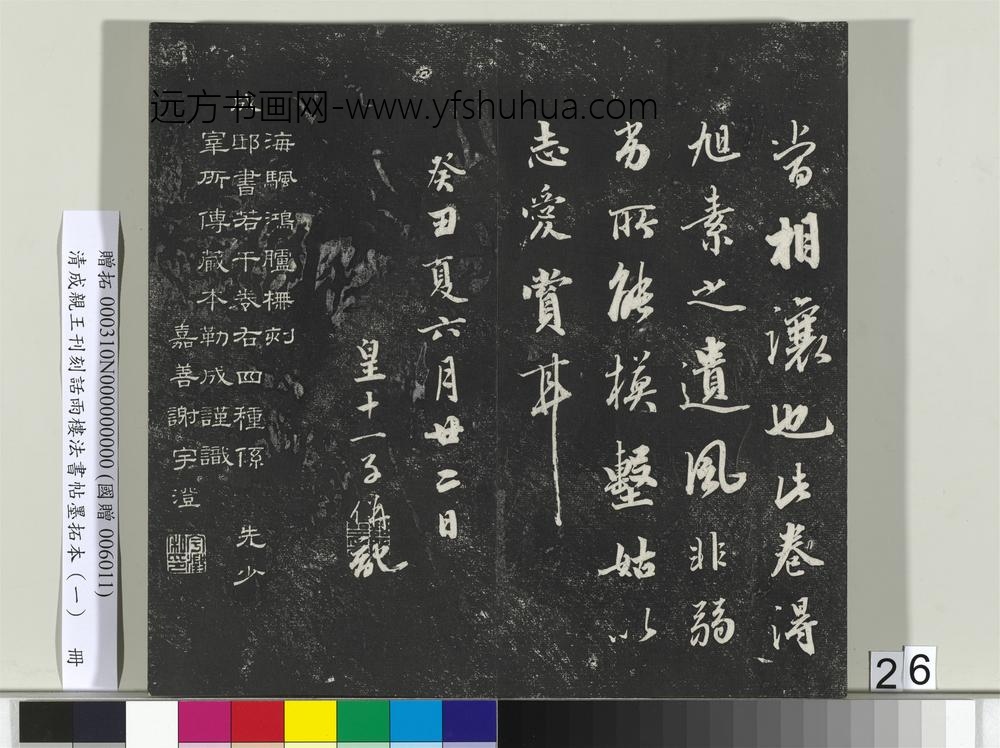 嘗相讓也此卷得
旭素之遺風非弱
劣所能模壑姑以
志愛賞耳
癸丑夏六月廿二日
皇十一子
記
海颿鴻臚柵刻
邸書若干卷右四種係 先少
宰所傳藏本勒成謹識
嘉善謝宇澄
远方书画网-www.yfshuhua.com
贈拓 000310N000000000 (國贈 006011)
清成親王刊刻話雨樓法書帖墨拓本(一) 冊
26